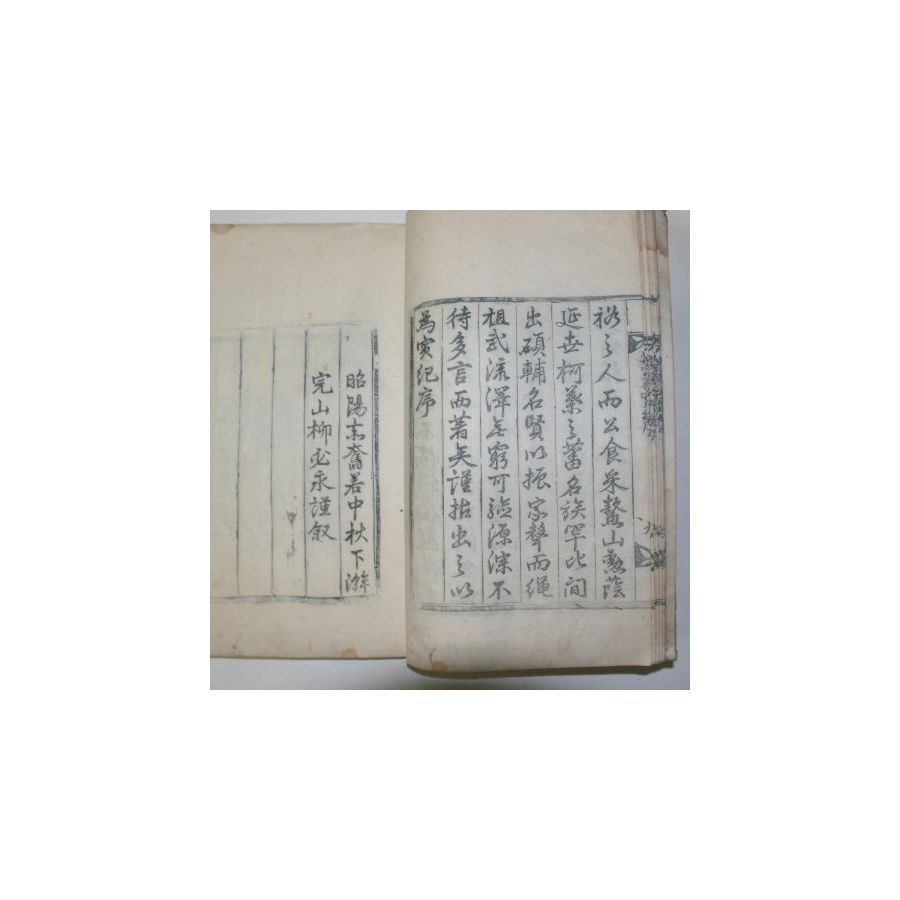 裕之人而公食采鰲山勲蔭
延世柯葉之蕃名族罕比間
出碩輔名賢以振家聲而繩
祖武流澤無窮可驗源深不
待多言而著矣謹拈出之以
為实紀序
昭陽赤奮若中秋下澣
完山柳必永謹叙